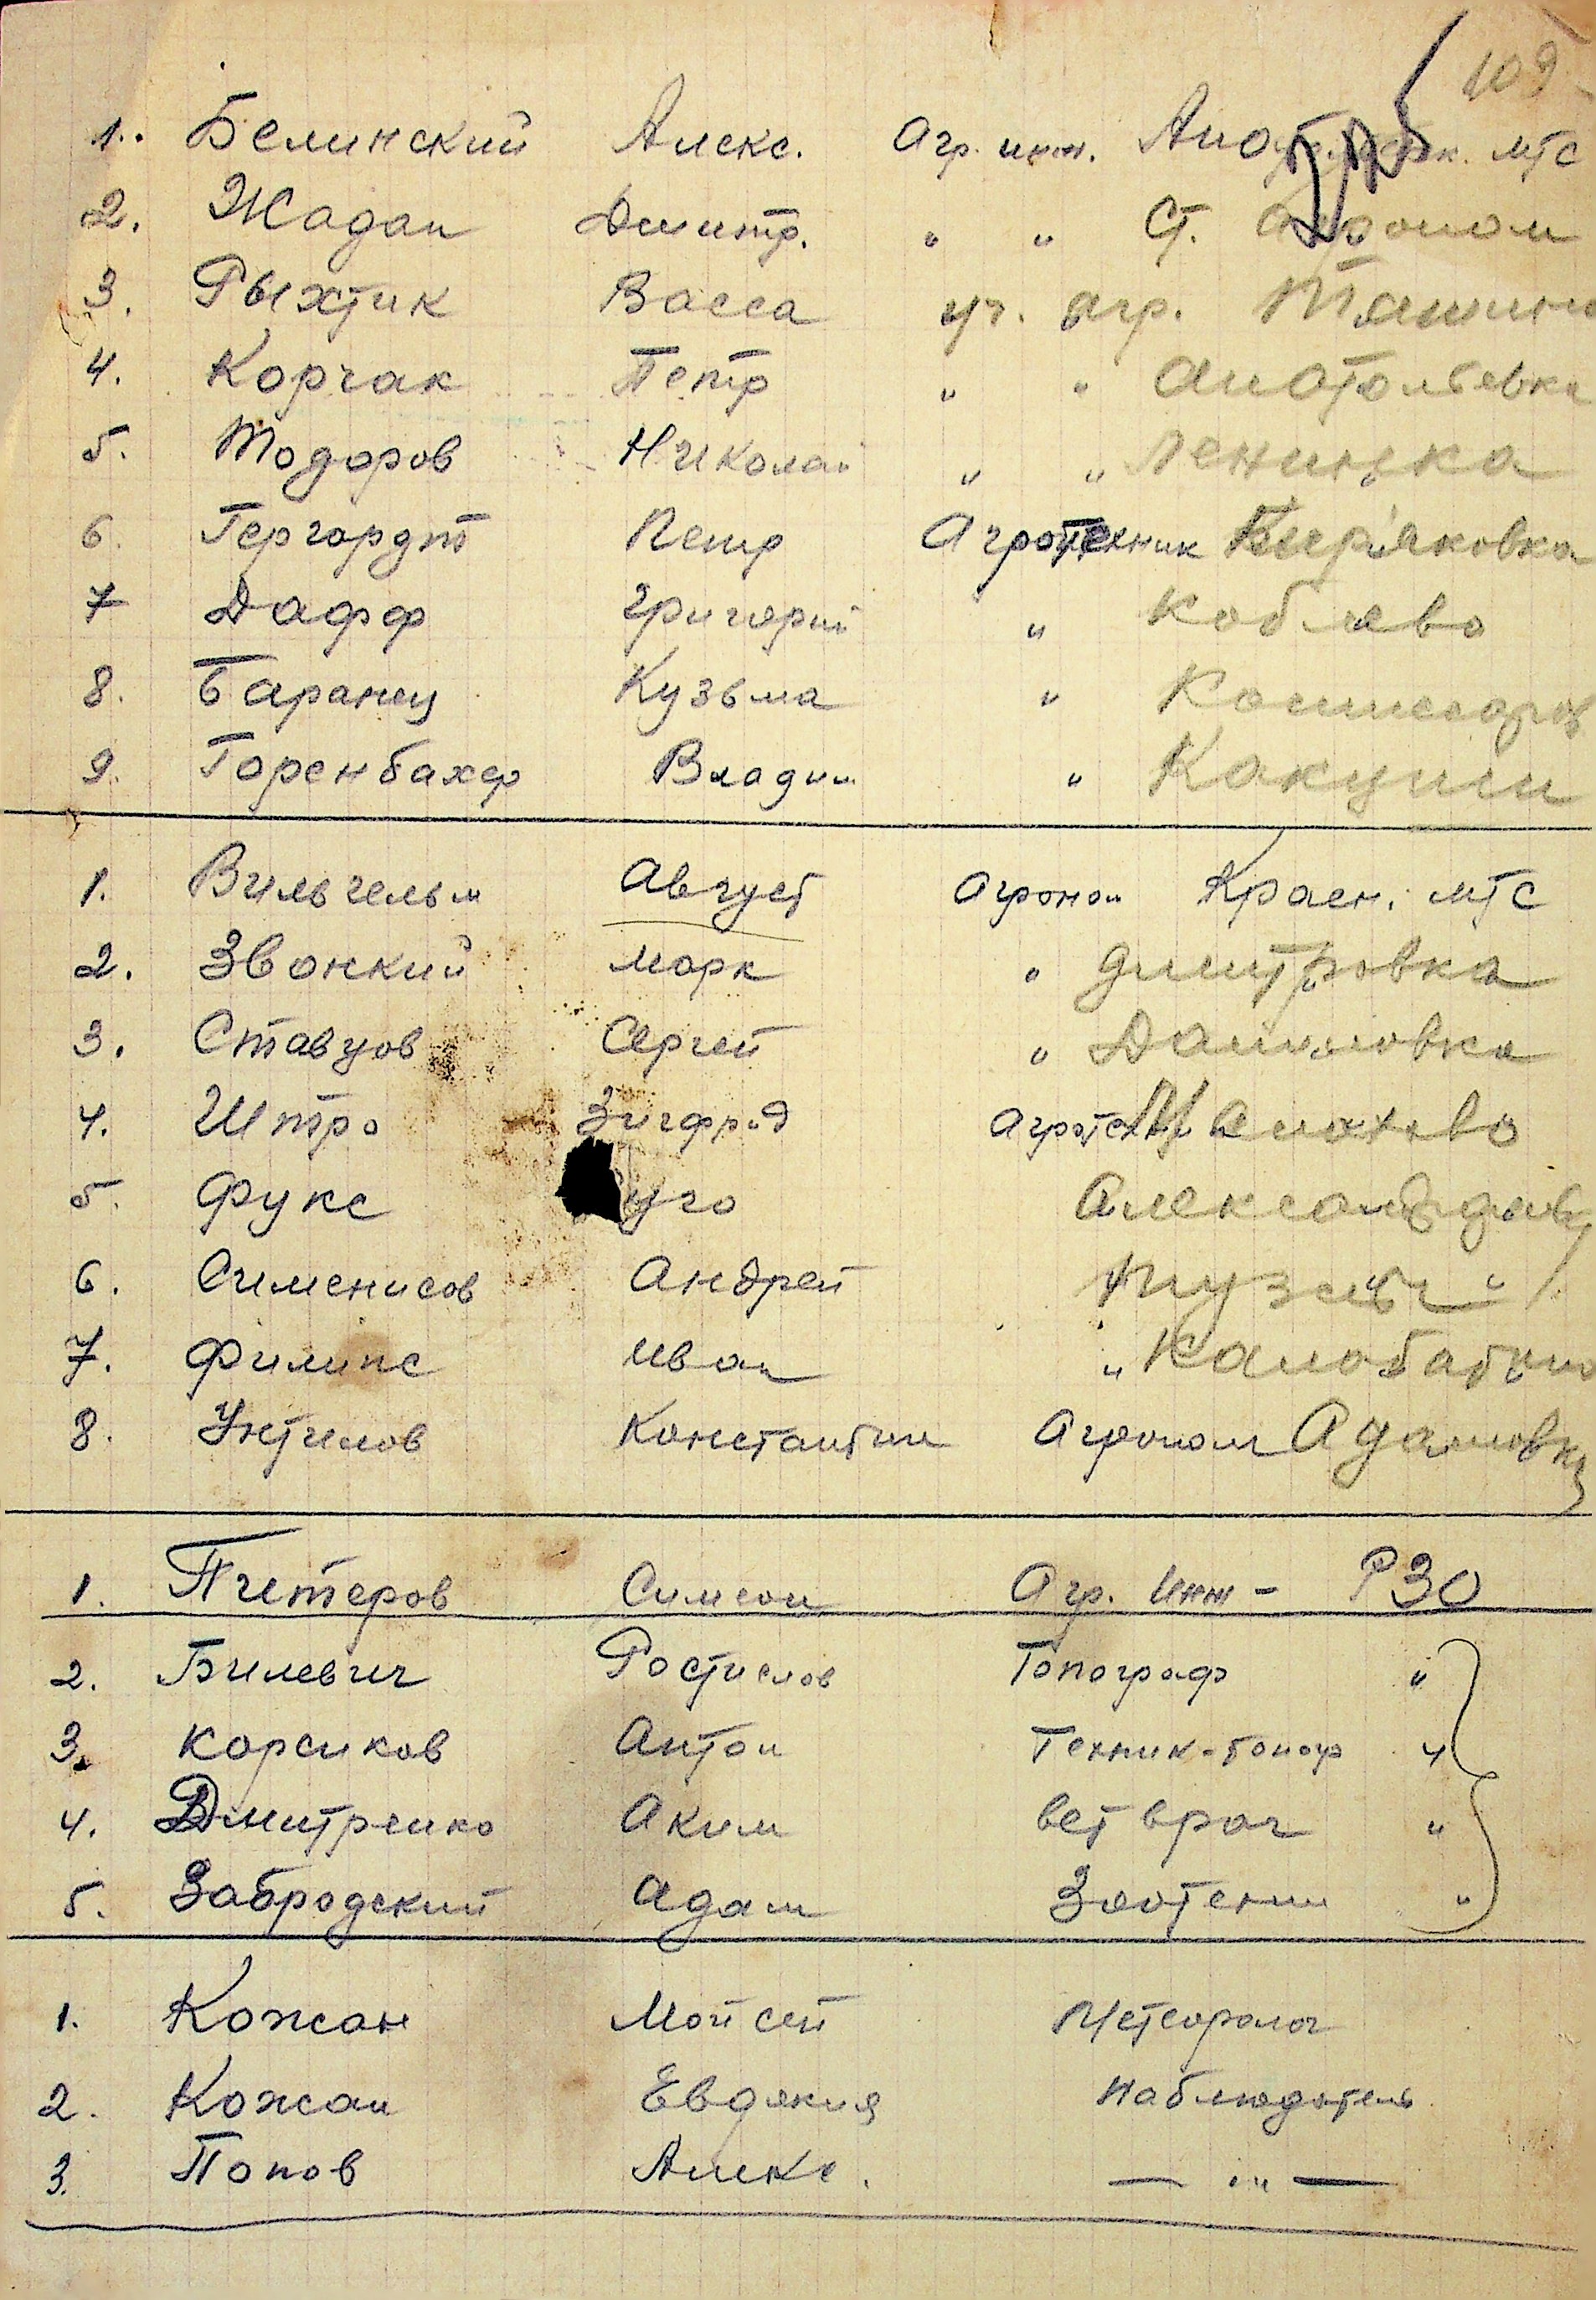 109
1. Белинский Алекс. Агр. инж. МТС
2. Жадан Димитр. " " Ст. агроном
3. Рыхтик Васса уч. агр. Ташино
4. Корчак Петр " " Анатольевка
5. Тодоров Николай " " Ленинка
6. Гергардт Петр Агротехник Бирáковка
7 Дафф Григорий " Коблево
8. Баранец Кузьма " Комиссаров
9. Горенбахер Владим " Какуши
1. Вильгельм Август Агроном Красн. МТС
2. Звонкий Марк " Димитровка
3. Ставцов Сергей " Даниловка
4. Штро Зигфрид Агротехник
5. Фукс уго Александровк
6. Сименисов Андрей "
7. Филипс Иван "
8. Унтилов Константин Агроном Адамовка
1. Пчетеров Симеон Агр. Инж - РЗО
2. Билевич Ростислав Топограф "
3. Корсиков Антон Техник-топогр "
4. Дмитренко Аким Вет врач "
5. Забродский Адам Зоотехник "
1. Кожан Мойсей Метеоролог
2. Кожан Евдокия Наблюдатель
3. Попов Алекс. — " —